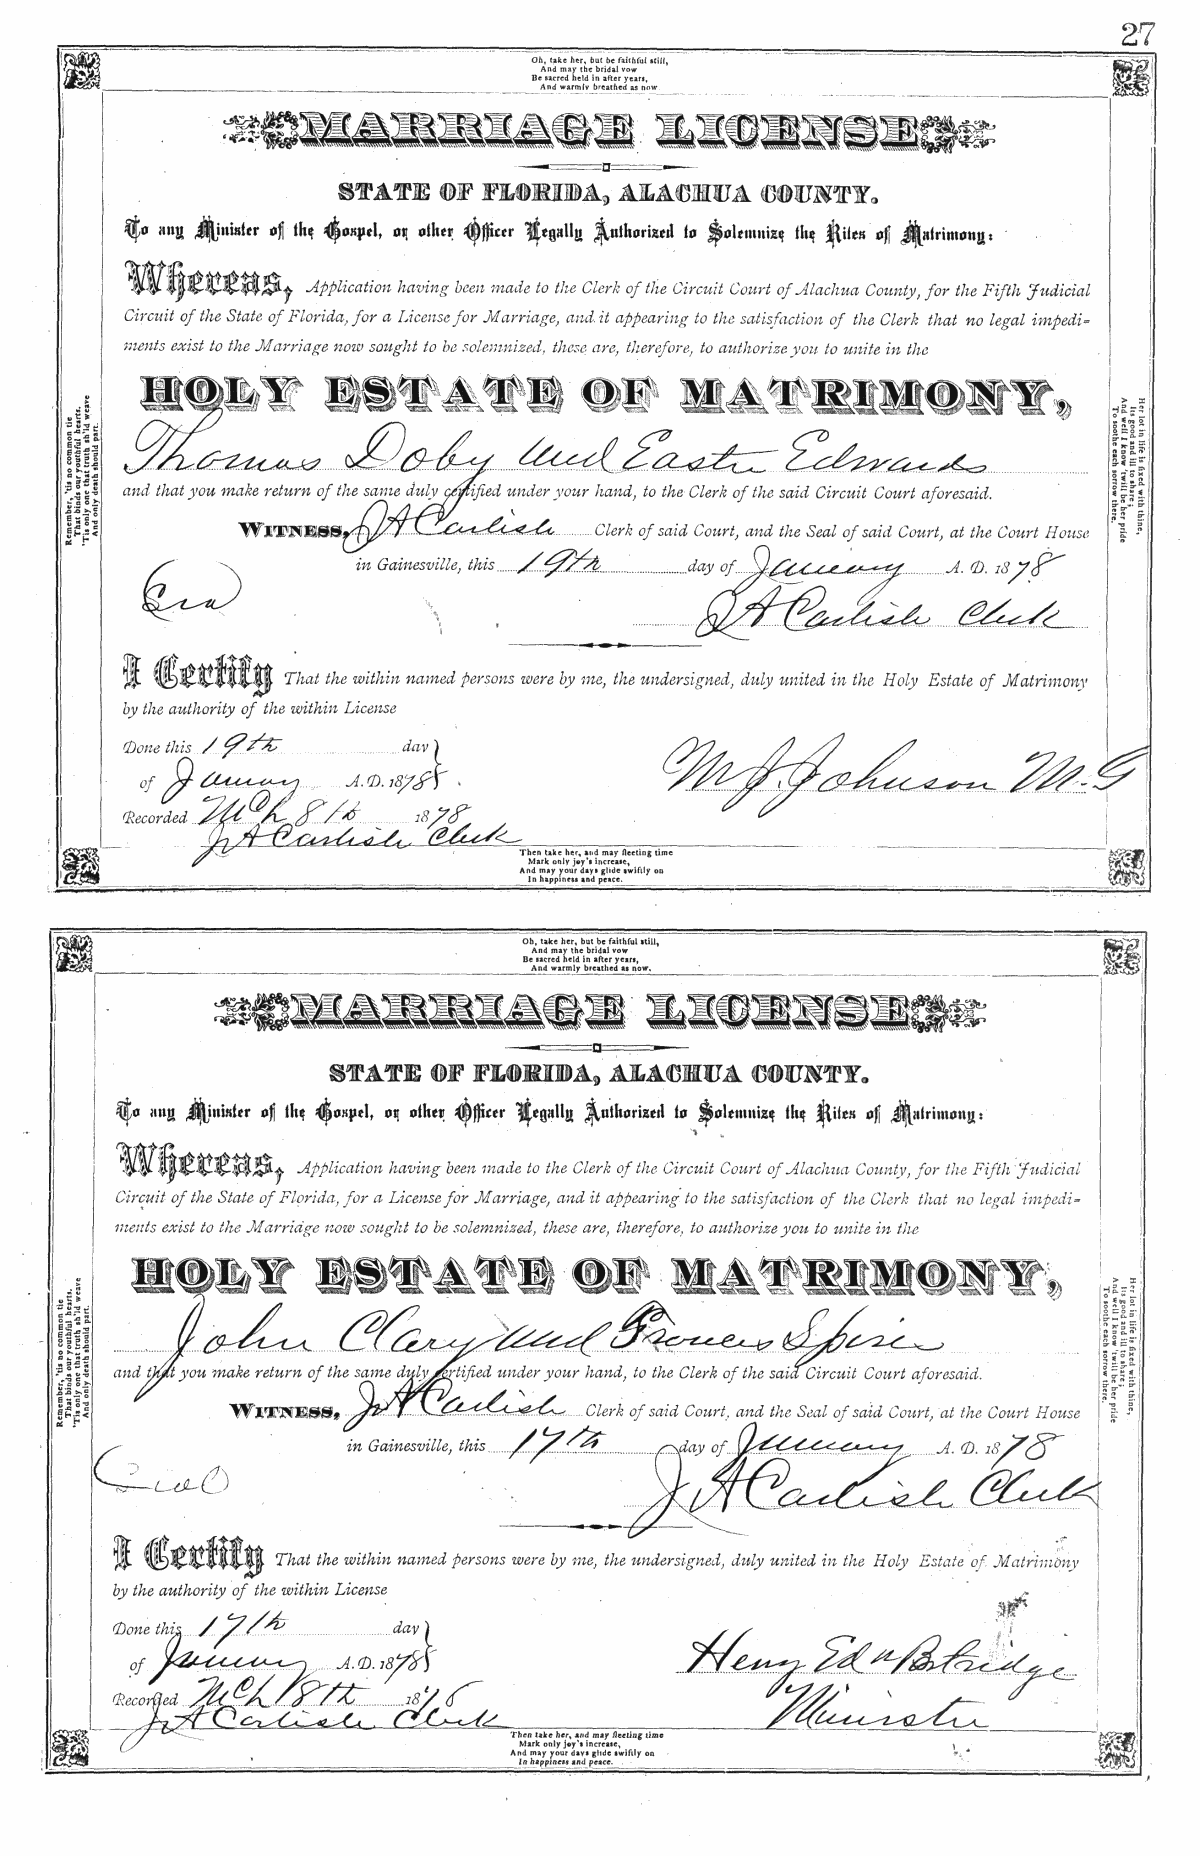 27
Oh, take her, but be faithful still,
And may the bridal vow
Be sacred held in after years,
And warmly breathed as now
MARRIAGE LICENSE
STATE OF FLORIDA, ALACHUA COUNTY.
To any Minister of the Gospel, or other Officer Legally Authorized to Solemnize the Rites of Matrimony:
Whereas, Application having been made to the Clerk of the Circuit Court of Alachua County, for the Fifth Judicial
Circuit of the State of Florida, for a License for Marriage, and it appearing to the satisfaction of the Clerk that no legal impedi-
ments exist to the Marriage now sought to be solemnized, these are, therefore, to authorize you to unite in the
HOLY ESTATE OF MATRIMONY,
Thomas Doby and Easter Edwards
and that you make return of the same duly certified under your hand, to the Clerk of the said Circuit Court aforesaid.
WITNESS, J A Carlisle Clerk of said Court, and the Seal of said Court, at the Court House
in Gainesville, this 19th day of January A. D. 1878
J A Carlisle Clerk
I Certify That the within named persons were by me, the undersigned, duly united in the Holy Estate of Matrimony
by the authority of the within License
Done this 19th day
of January A.D. 1878
M J Johnson M.G
Recorded Mch 8th 1878
J A Carlisle Clerk
Remember, 'tis no common tie
That binds our youthful hearts.
'Tis only one that truth sh'ld weave
And only death should part.
Her lot in life is fixed with thine,
Its good and ill to share;
And well I know 'twill be her pride
To soothe each sorrow there.
Then take her, and may fleeting time
Mark only joy's increase,
And may your days glide swiftly on
In happiness and peace.
Oh, take her, but be faithful still,
And may the bridal vow
Be sacred held in after years,
And warmly breathed as now.
MARRIAGE LICENSE
STATE OF FLORIDA, ALACHUA COUNTY.
To any Minister of the Gospel, or other Officer Legally Authorized to Solemnize the Rites of Matrimony:
Whereas, Application having been made to the Clerk of the Circuit Court of Alachua County, for the Fifth Judicial
Circuit of the State of Florida, for a License for Marriage, and it appearing to the satisfaction of the Clerk that no legal impedi-
ments exist to the Marriage now sought to be solemnized, these are, therefore, to authorize you to unite in the
HOLY ESTATE OF MATRIMONY,
John Clary and Frances Spires
and that you make return of the same duly certified under your hand, to the Clerk of the said Circuit Court aforesaid.
WITNESS, J A Carlisle Clerk of said Court, and the Seal of said Court, at the Court House
in Gainesville, this 17th day of January A. D. 1878
Seal
J A Carlisle Clerk
I Certify That the within named persons were by me, the undersigned, duly united in the Holy Estate of Matrimony
by the authority of the within License
Done this 17th day
of January A.D. 1878
Henry Ed Partridge
Recorded Mch 8th 1878
Minister
J A Carlisle Clerk
Remember, 'tis no common tie
That binds our youthful hearts.
'Tis only one that truth sh'ld weave
And only death should part.
Her lot in life is fixed with thine,
Its good and ill to share;
And well I know 'twill be her pride
To soothe each sorrow there.
Then take her, and may fleeting time
Mark only joy's increase,
And may your days glide swiftly on
In happiness and peace.